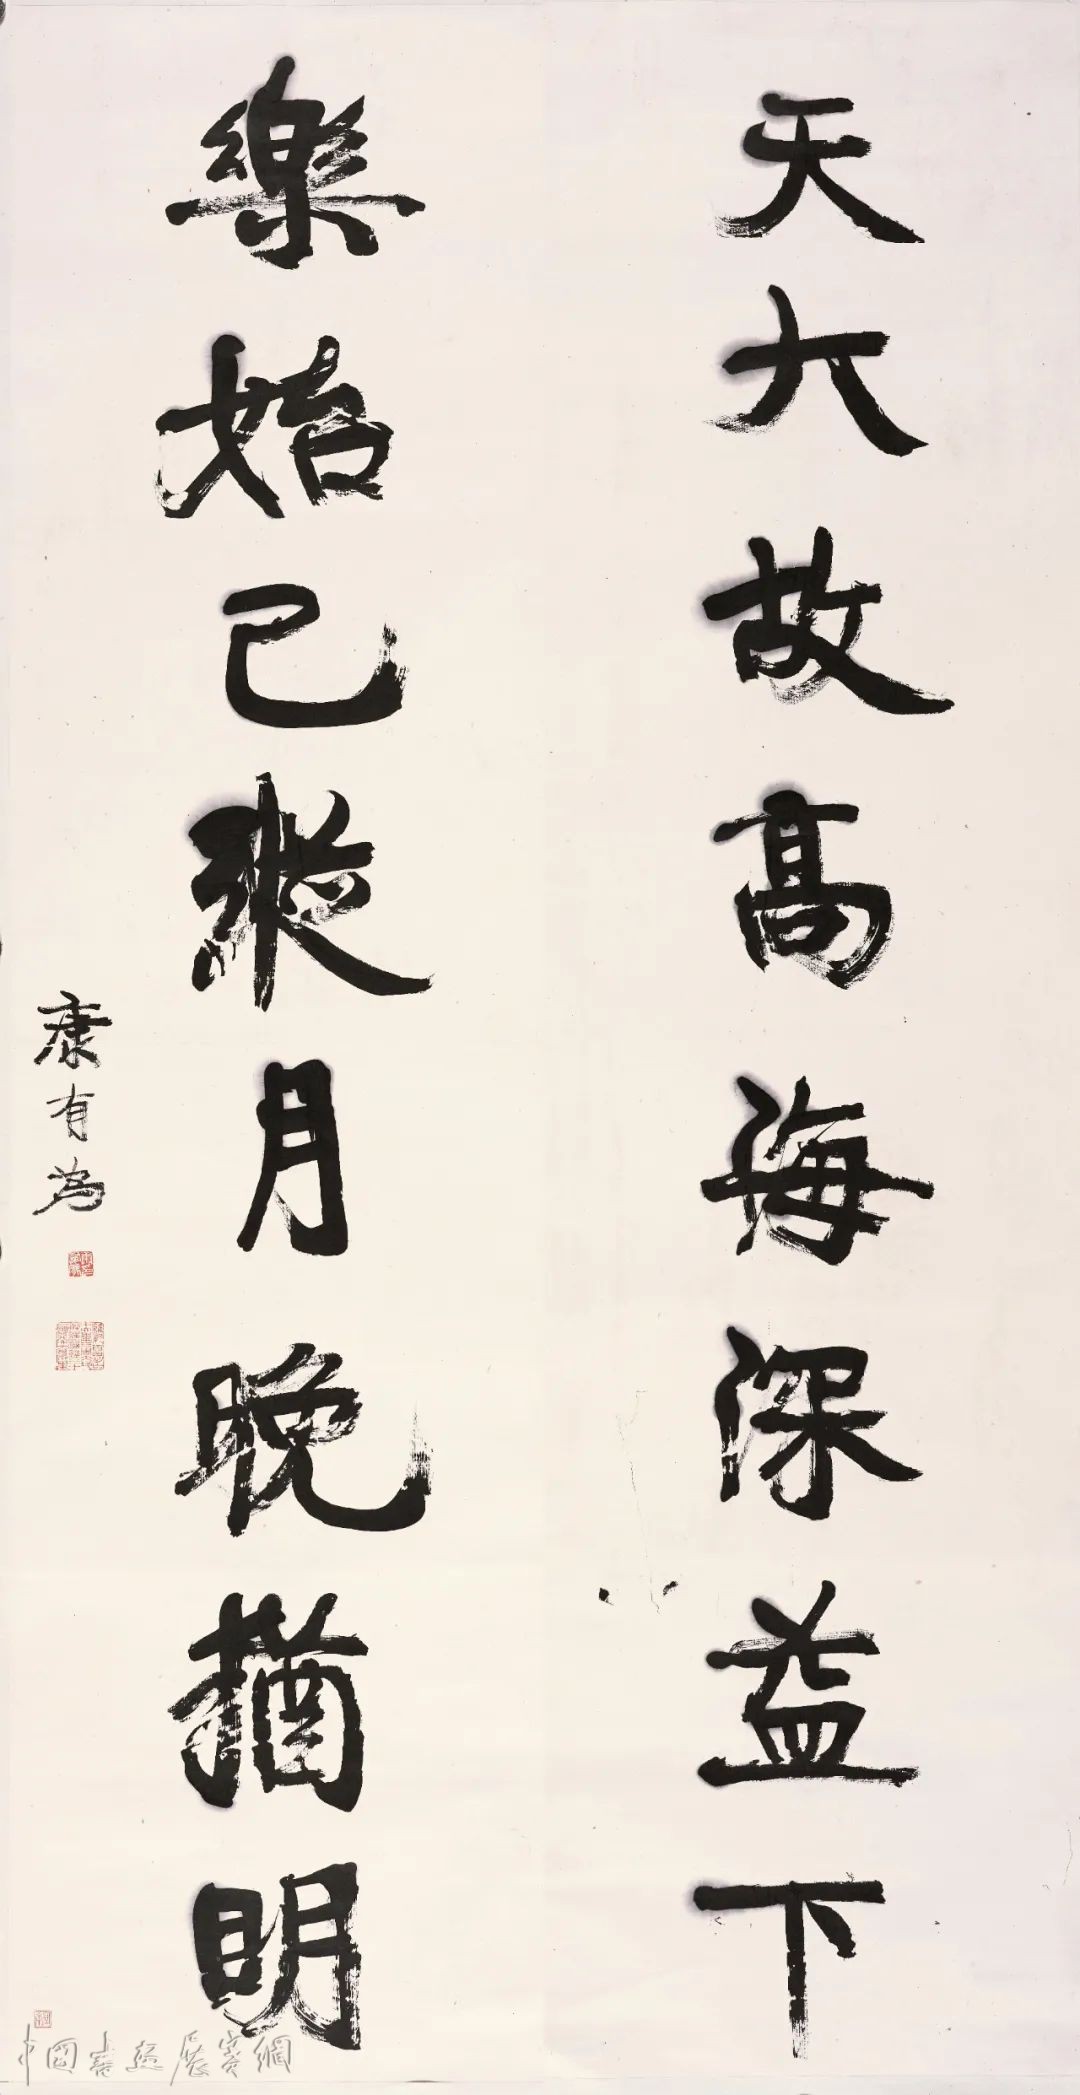 天大故高海深益下
樂始已縱月晚猶明
康有為
中國書畫展賽網